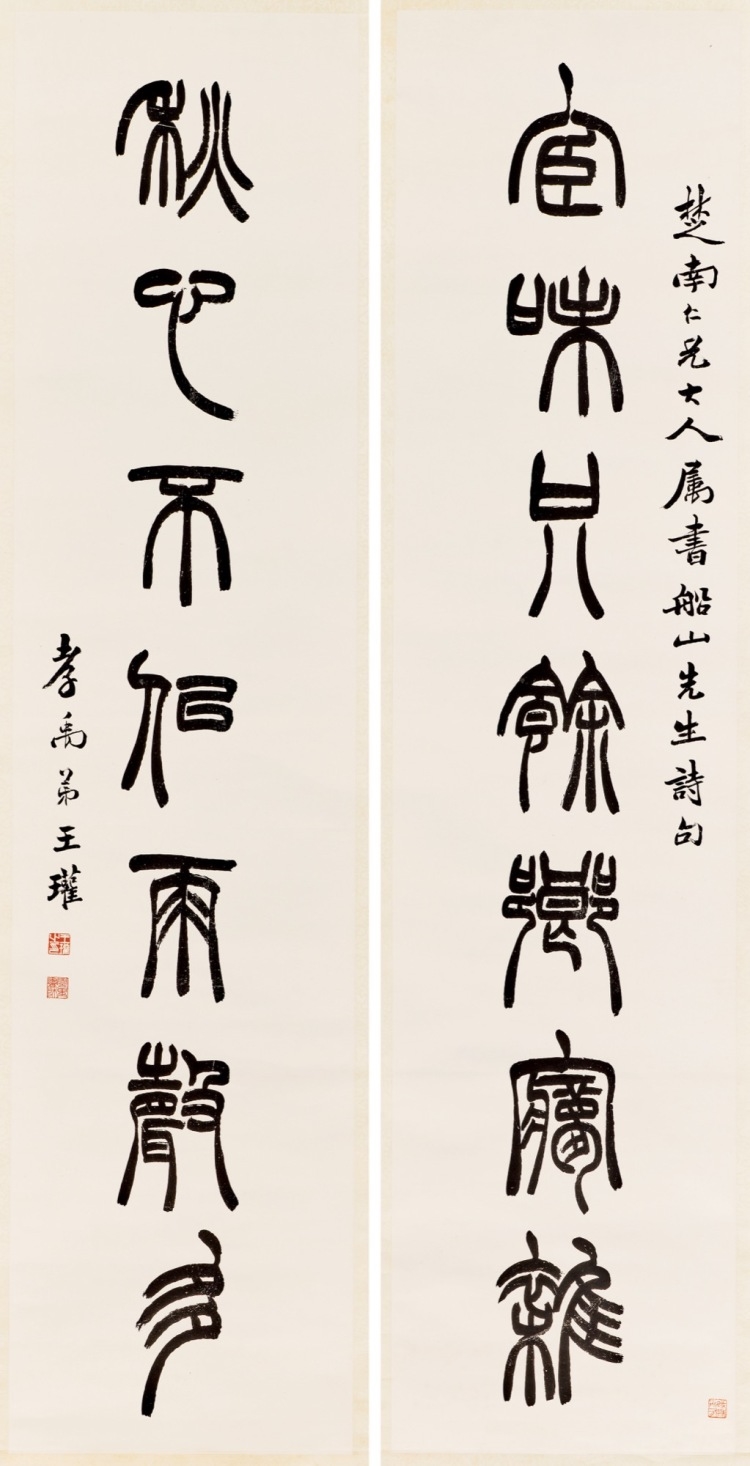 楚南仁兄大人属書船山先生詩句
宦味只餘鄉夢雜
秋心不似雨聲多
孝禹弟王瓘